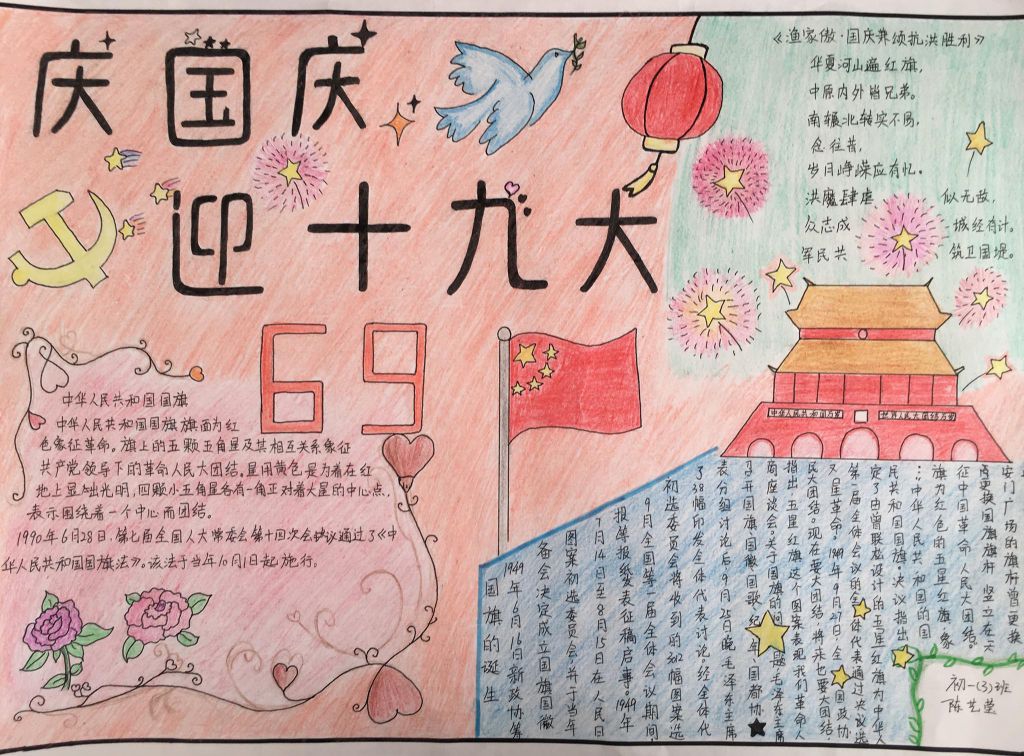 庆国庆
迎十九大
69
《渔家傲·国庆弊颂抗洪胜利》
华夏河山遍红旗,
中原内外皆兄弟。
南辗北转实不易,
念往昔,
岁月峥嵘应有忆。
洪魔肆虐 似无敌,
众志成 城经有计。
军民共 筑卫国堤。
中华人民共和国万岁
世界人民大团结万岁
中华人民共和国国旗
中华人民共和国国旗旗面为红
色象征革命。旗上的五颗五角星及其相互关系象征
共产党领导下的革命人民大团结。星用黄色是为着在红
地上显出光明,四颗小五角星各有一角正对着大星的中心点,
表示围绕着一个中心而团结。
1990年6月28日,第七届全国人大常委会第十四次会议通过了《中
华人民共和国国旗法》。该法于当年10月1日起施行。
国旗的诞生
1949年6月16日新政协筹
备会决定成立国旗国徽
图案初选委员会并于当年
7月14日至8月15日在人民日
报等报纸发表征稿启事。1949年
9月全国第一届全体会议期间,
初选委员会将收到的312幅图案选
了38幅印发全体代表讨论。经全体代
表分组讨论后9月25日晚毛泽东主席
召开国旗国徽国歌纪年、国都协
商座谈会。关于国旗的问题毛泽东主席
指出五星红旗这个图案表现我们革命人
民大团结。现在要大团结,将来也要大团结,
又是革命。1949年9月27日,全国政协
第一届全体会议的全体代表通过决议选
定了由曾联松设计的五星红旗为中华人
民共和国国旗。决议指出
:中华人民共和国的国
旗为红色的五星红旗,象
征中国革命人民大团结。
再更换国旗旗杆竖立在天
安门广场的旗杆曾更换
初一(3)班
陈艺莹